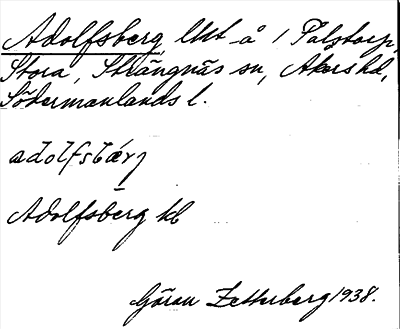 Adolfsberg, lht å 1 Talstorp,
Stora, Strängnäs sn, Åkers hd,
Södermanlands l.
adolfsbærj
Adolfsberg kb
Göran Zetterberg 1938.